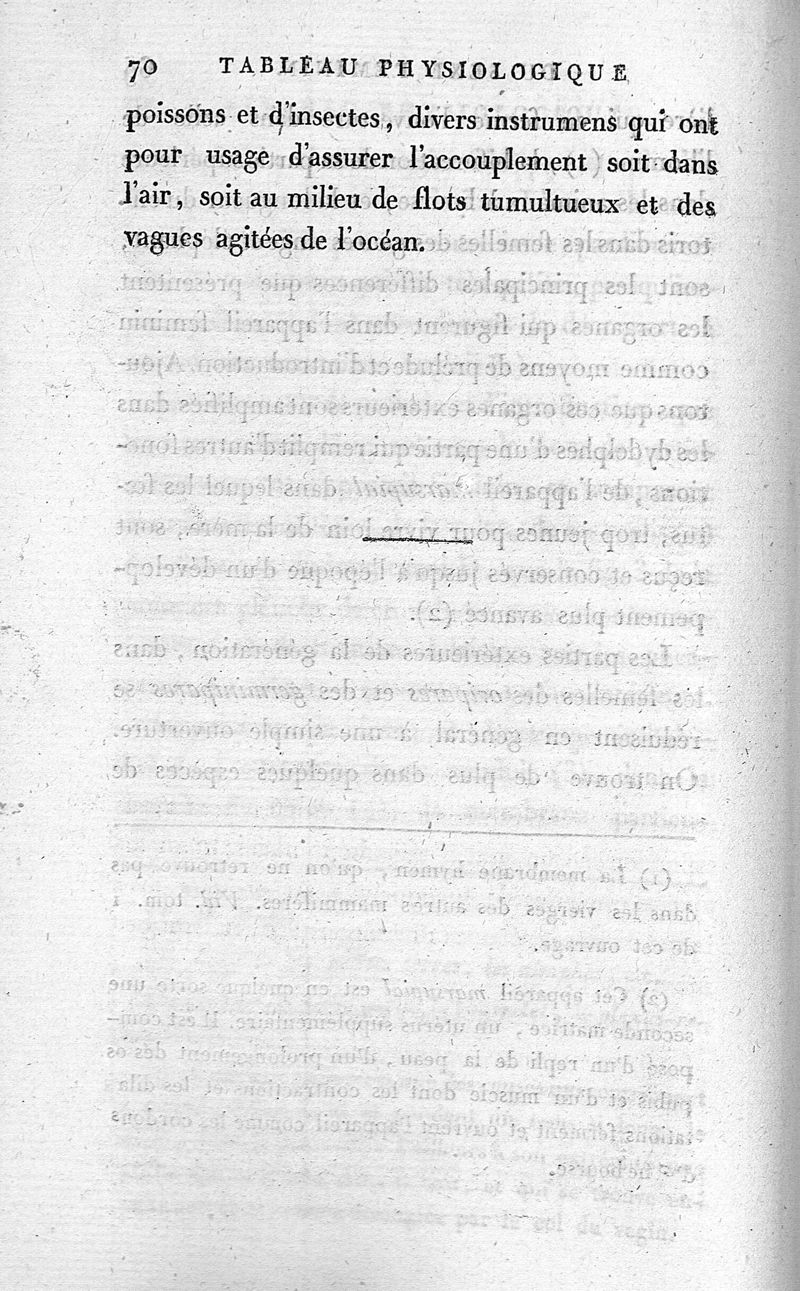 70 TABLEAU PHYSIOLOGIQUE
poissons et d'insectes, divers instrumens qui ont
pour usage d'assurer l'accouplement soit dans
l'air, soit au milieu de flots tumultueux et des
vagues agitées de l'océan.